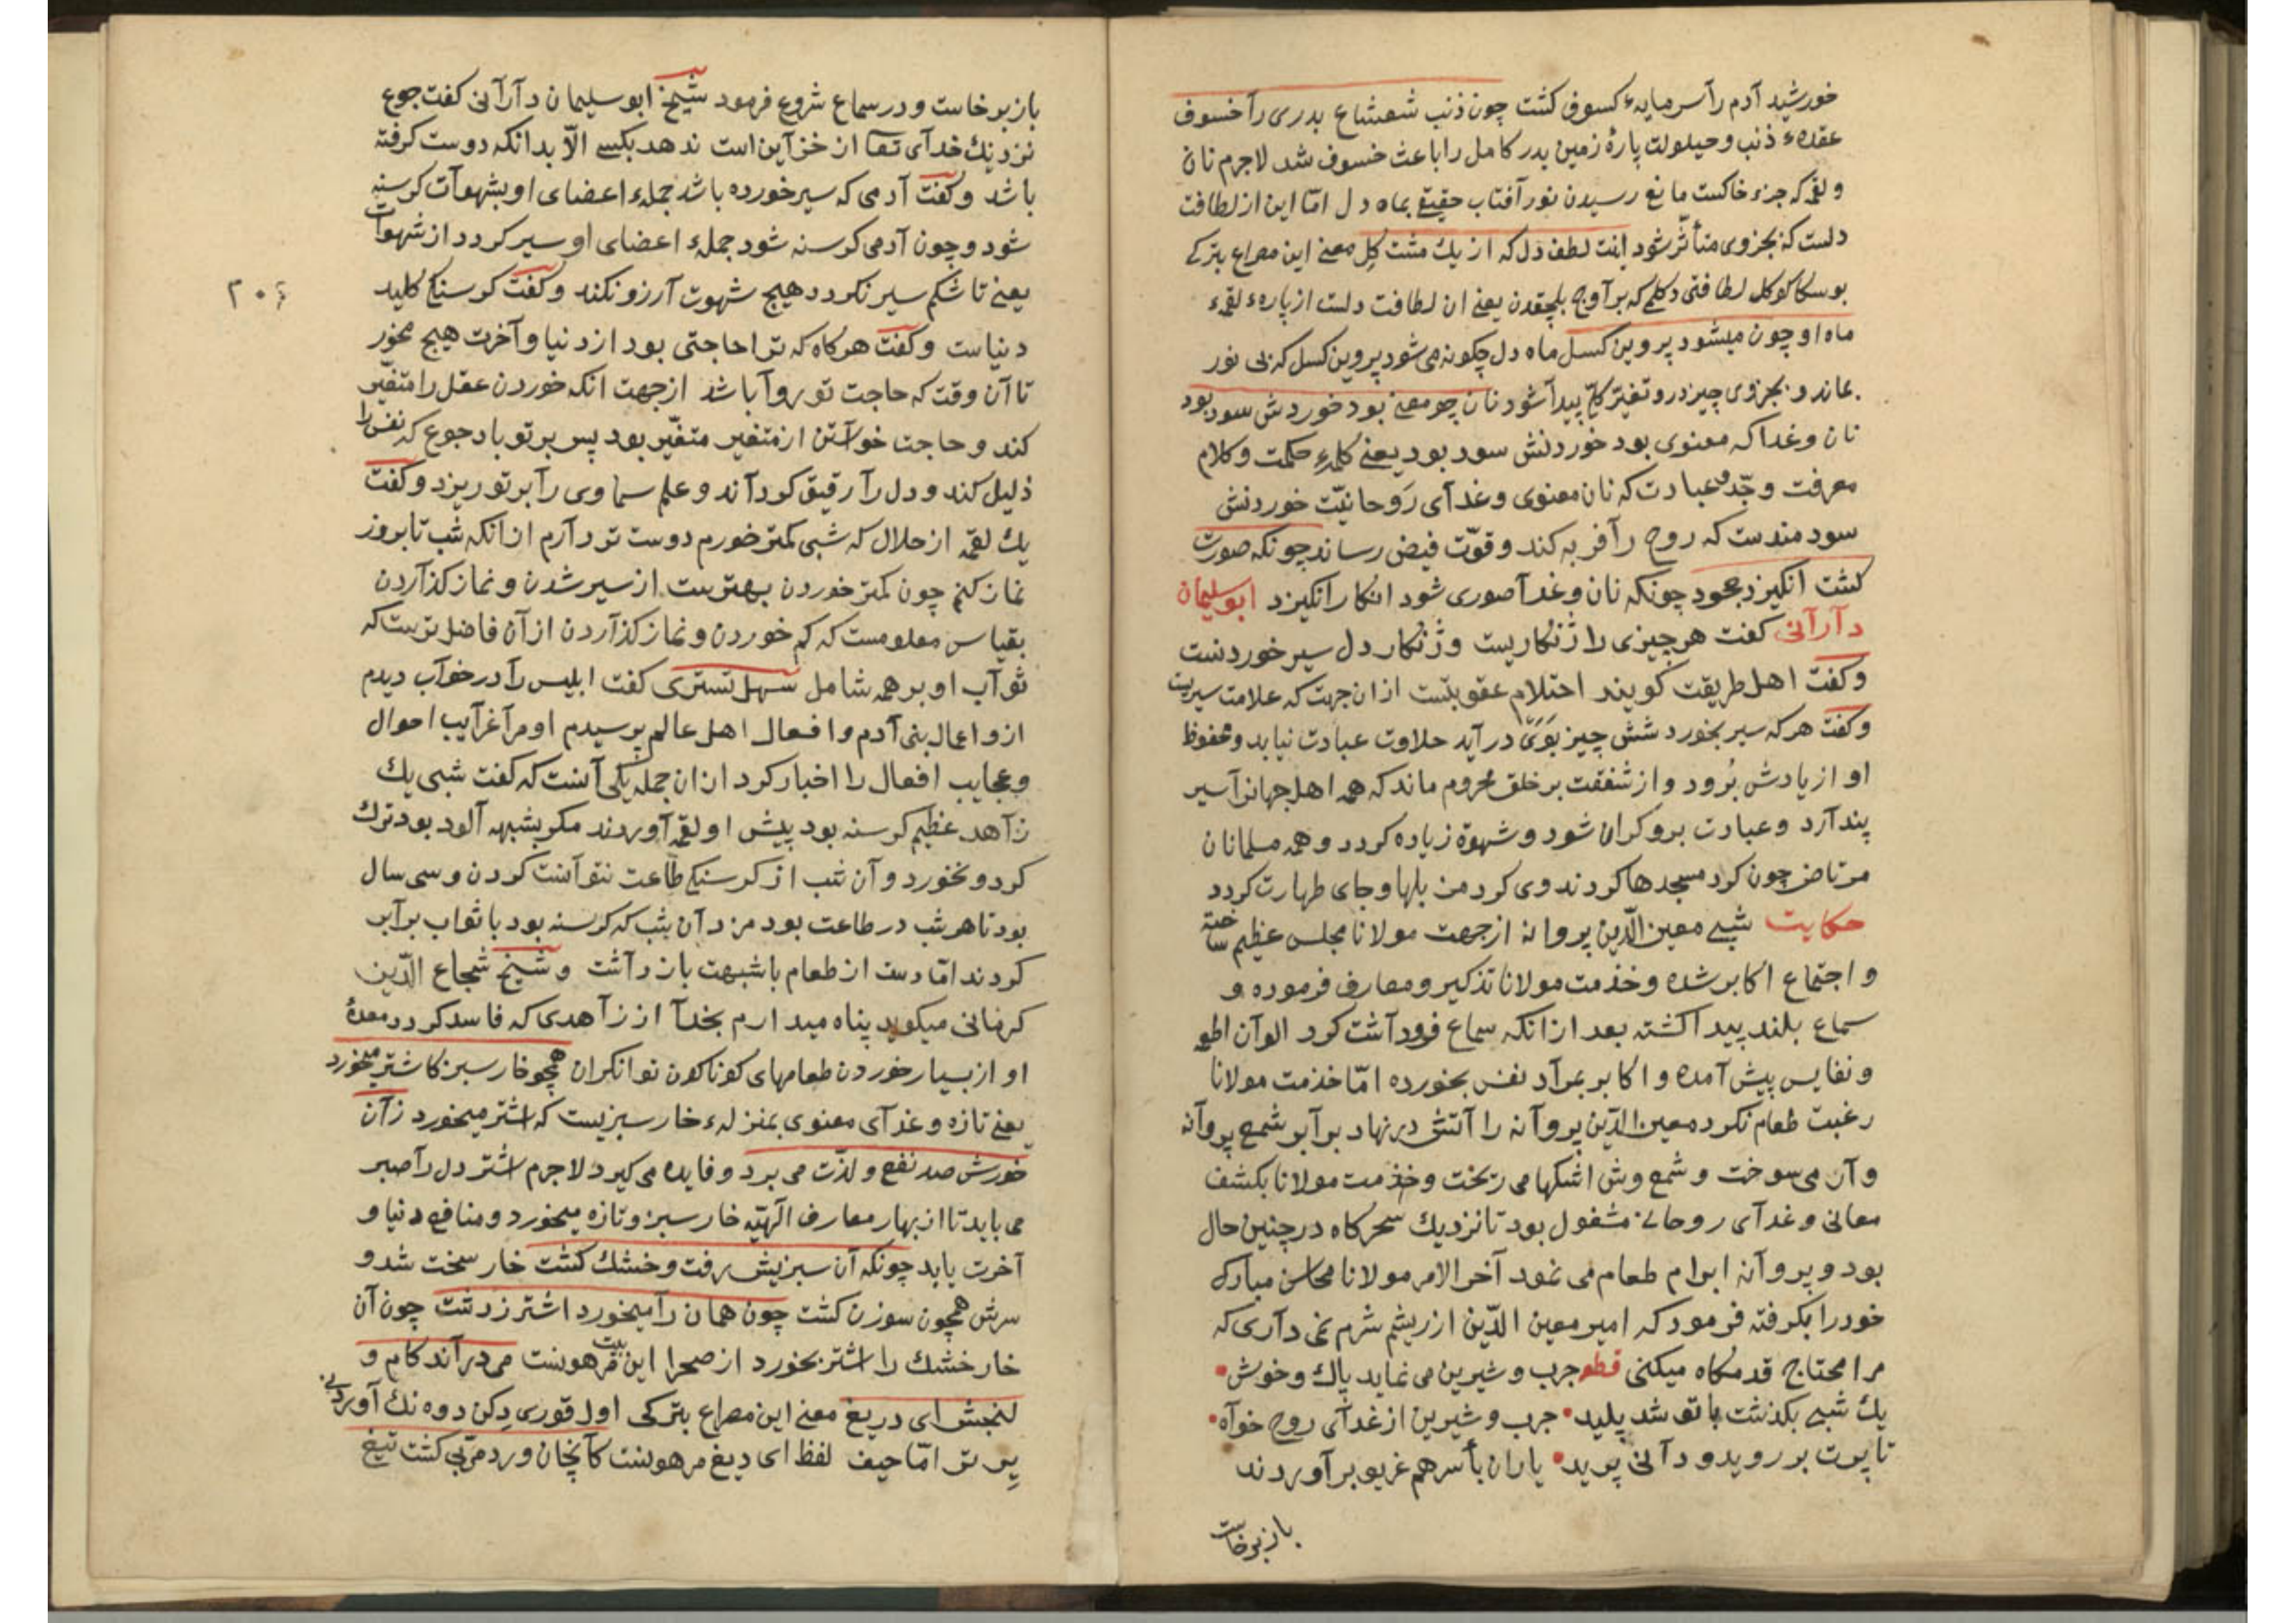 خورشید آدم رآ سرمایهٔ کسوف کشت چون ذنب شعشاع بدری رآ خسوف
عقدهٔ ذنب و حیلولت پارهٔ زمین بدر کامل را باعث خسوف شد لاجرم نان
و لقمه که جزء خاکست مانع رسیدن نور آفتاب حقیقی بماه دل امّا این از لطافت
دلست که بجزوی متأثّر شود اینت لطف دل که از یك مشت کِل معنی این مصراع بترکی
بو سکا کوکل لطافتی دکلمی که بر آوج بلچقدن یعنی ان لطافت دلست از پارهٔ لقمهٔ
ماه او چون میشود پروین کسل ماه دل چکونه می شود پروین کسل که بی نور
بماند و بجزوی چیز درو تغیّر کلّی پیدآ شود نان چو معنی بود خوردش سود بود
نان و غدا که معنوی بود خوردنش سود بود یعنی کلمهٔ حکمت و کلام
معرفت و جدّ و عبادت که نان معنوی و غدآی رَوحانیّت خوردنش
سودمندست که روح رآ فربه کند و قوّت فیض رساند چونکه صورت
کشت انکیزد جحود چونکه نان و غدآ صوری شود انکار انکیزد ابو سلیمان
دآرآنی کفت هر چیزی را ژنکاریست و ژنکار دل سیر خوردنست
و کفت اهل طریقت کویند احتلام عقوبتست ازان جهت که علامت سیریست
و کفت هر که سیر بخورد شش چیز بوَیْ در آید حلاوت عبادت نیابد و محفوظ
او از یادش بُرود و از شفقت بر خلق محروم ماند که همه اهل جهانرآ سیر
پندآرد و عبادت برو کران شود و شهوة زیاده کردد و همه مسلمانان
مرتاض چون کرد مسجدها کردند وی کرد مزبلها و جای طهارت کردد
حکایت شبی معین الدّین پروانه از جهت مولانا مجلس عظیم ساخته
و اجتماع اکابر شده و خذمت مولانا تذکیر و معارف فرموده و
سماع بلند پیدا کشته بعد ازانکه سماع فرود آشت کرد الوآن اطعمه
و نفایس پیش آمده و اکابر بمرآد نفس بخورده امّا خذمت مولانا
رغبت طعام نکرد معین الدّین پروآنه را آتش در نهاد برآبر شمع پروآنه
و آن می سوخت و شمع وش اشکها می ریخت و خذمت مولانا بکشف
معانی و غدآی روحانی مشغول بود تا نزدیك سحرکاه در چنین حال
بود و پروآنه ابرام طعام می نمود آخر الامر مولانا محاسن مبارك
خود را بکرفته فرمود که امیر معین الدّین از ریشم شرم نمی دآری که
مرا محتاج قدمکاه میکنی قطعه جرب و شیرین می نماید پاك و خوش
یك شبی بکذشت با تو شد پلید جرب و شیرین از غدآی روح خوآه
تا پرت بر روید و دآنی پرید یاران بأسرهم غریو بر آوردند
باز برخاست
باز برخاست و در سماع شروع فرمود شیخ ابو سلیمان دآرآنی کفت جوع
نزدیك خدآی تعآ از خزآین است ندهد بکسی الّا بدانکه دوست کرفته
باشد و کفت آدمی که سیر خورده باشد جملهٔ اعضای او بشهوآت کرسنه
شود و چون آدمی کرسنه شود جملهٔ اعضای او سیر کردد از شهوآت
یعنی تا شکم سیر نکردد هیج شهوت آرزو نکند و کفت کرسنکی کلید
۲۰۶
دنیاست و کفت هرکاه که ترا حاجتی بود از دنیا و آخرت هیج مخور
تا آن وقت که حاجت تو روآ باشد ازجهت انکه خوردن عقل را متغیّر
کند و حاجت خوآستن از متغیر متغیّر بود پس بر تو باد جوع که نفس را
ذلیل کند و دل رآ رقیق کردآند و علم سماوی رآ بر تو ریزد و کفت
یك لقمه از حلال که شبی کمتر خورم دوست تر دآرم ازانکه شب تا بروز
نماز کنم چون کمتر خوردن بهترست از سیر شدن و نماز کذآردن
بقیاس معلومست که کم خوردن و نماز کذآردن از آن فاضل ترست که
ثوآب او بر همه شامل سهل تستری کفت ابلیس رآ در خوآب دیدم
ازو اعمال بنی آدم و افعال اهل عالم پرسیدم او مرآ غرآیب احوال
و عجایب افعال را اخبار کرد ازان جمله یکی آنست که کفت شبی یك
زآهد عظیم کرسنه بود پیش او لقمه آوردند مکر بشبهه آلود بود ترك
کرد و نخورد و آن شب از کرسنکی طاعت نتوآنست کردن و سی سال
بود تا هر شب در طاعت بود مزد آن شب که کرسنه بود با ثواب برآبر
کردند امّا دست از طعام با شبهت باز دآشت و شیخ شجاع الدّین
کرمانی میکوید پناه میدارم بخدآ از زآهدی که فاسد کردد معدهٔ
او از بسیار خوردن طعامهای کوناکون توانکران همچو خار سبز کاشتر میخورد
یعنی تازه و غدآی معنوی بمنزلهٔ خار سبزیست که اشتر میخورد زآن
خورش صد نفع و لذّت می برد و فایده می کیرد لاجرم اشتر دل رآ صبر
می باید تا از بهار معارف الٓهیّه خار سبز و تازه میخورد و منافع دنیا و
آخرت یابد چونکه آن سبزیش رفت و خشك کشت خار سخت شد و
سرش همچون سوزن کشت چون همان رآ میخورد اشتر ز دشت چون آن
خار خشك را اشتر بخورد از صحرا این مرهونست بیت می درآند کام و
لنجش ای دریغ معنی این مصراع بترکی اول قوری دکن دوه نك آوردینی
یرتر امّا حیف لفظ ای دریغ مرهونست کآنچنان ورد مربّی کشت تیغ